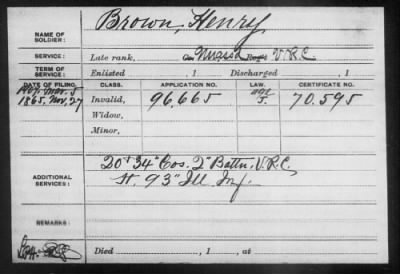 Brown, Henry
NAME OF SOLDIER:
SERVICE: Late rank, V.R.C.
TERM OF SERVICE: Enlisted , 1 Discharged , 1
DATE OF FILING. CLASS. APPLICATION NO. LAW. CERTIFICATE NO.
1865, Nov. 27 Invalid, 96,665 70.595
Widow,
Minor,
20" 34" Cos. 2" Battn. V.R.C.
ADDITIONAL SERVICES: H. 93" Ill Inf.
REMARKS:
Died , 1 , at